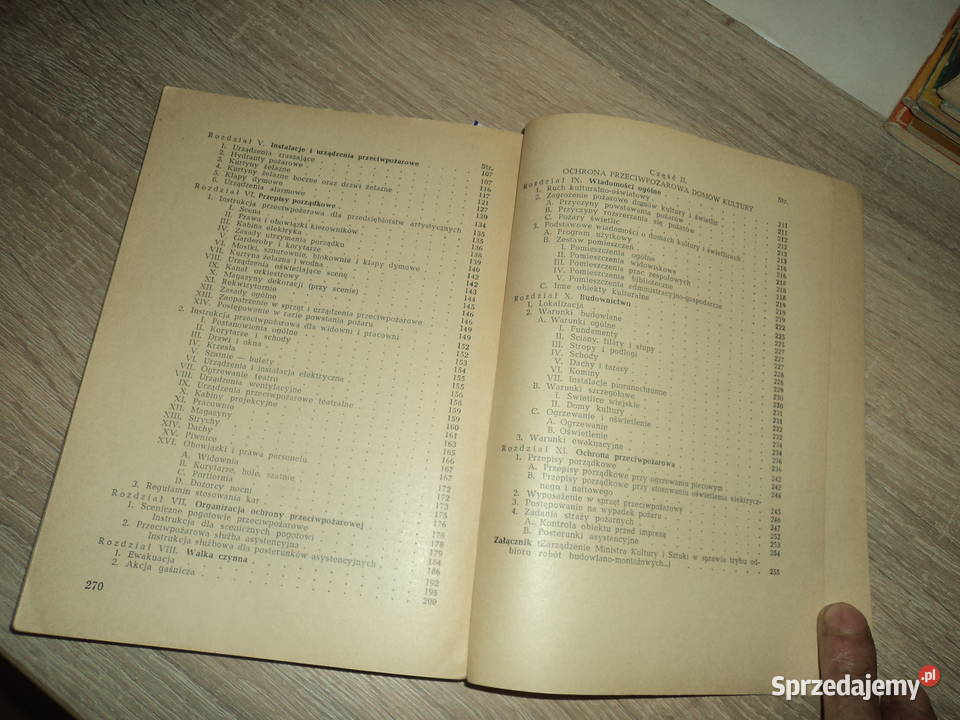 Rozdział V. Instalacje i urządzenia przeciwpożarowe
Str.
1. Urządzenia zraszające 107
2. Hydranty pożarowe 107
3. Kurtyny żelazne 116
4. Kurtyny żelazne boczne oraz drzwi żelazne 117
5. Klapy dymowe 121
6. Urządzenia alarmowe 127
Rozdział VI. Przepisy porządkowe 130
1. Instrukcja przeciwpożarowa dla przedsiębiorstw artystycznych 134
I. Scena 135
II. Prawa i obowiązki kierowników 135
III. Kabina elektryka 136
IV. Zasady utrzymania porządku 138
V. Garderoby i korytarze 139
VI. Mostki, sznurownie, blokownie i klapy dymowe 140
VII. Kurtyna żelazna i wodna 142
VIII. Urządzenia oświetlające scenę 142
IX. Kanał orkiestrowy 143
X. Magazyny dekoracji (przy scenie) 144
XI. Rekwizytornie 145
XII. Zasady ogólne 146
XIII. Zaopatrzenie w sprzęt i urządzenia przeciwpożarowe 146
XIV. Postępowanie w razie powstania pożaru 149
2. Instrukcja przeciwpożarowa dla widowni i pracowni 149
I. Postanowienia ogólne 152
II. Korytarze i schody 152
III. Drzwi i okna 153
IV. Krzesła 154
V. Szatnie — bufety 155
VI. Urządzenia i instalacja elektryczna 155
VII. Ogrzewanie teatru 156
VIII. Urządzenia wentylacyjne 156
IX. Urządzenia przeciwpożarowe teatralne 159
X. Kabiny projekcyjne 159
XI. Pracownie 160
XII. Magazyny 161
XIII. Strychy 163
XIV. Dachy 165
XV. Piwnice 166
XVI. Obowiązki i prawa personelu 167
A. Widownia 167
B. Korytarze, hole, szatnie 172
C. Portiernia 172
D. Dozorcy nocni 173
3. Regulamin stosowania kar 175
Rozdział VII. Organizacja ochrony przeciwpożarowej 176
1. Sceniczne pogotowie przeciwpożarowe 178
Instrukcja dla scenicznych pogotowi 178
2. Przeciwpożarowa służba asystencyjna 179
Instrukcja służbowa dla posterunków asystencyjnych 184
Rozdział VIII. Walka czynna 186
1. Ewakuacja 192
2. Akcja gaśnicza 195
200
270
Część II.
OCHRONA PRZECIWPOŻAROWA DOMÓW KULTURY
Str.
Rozdział IX. Wiadomości ogólne
1. Ruch kulturalno-oświatowy 211
2. Zagrożenie pożarowe domów kultury i świetlic 211
A. Przyczyny powstawania pożarów 212
B. Przyczyny rozszerzania się pożarów 212
C. Pożary świetlic 212
3. Podstawowe wiadomości o domach kultury i świetlicach 213
A. Program użytkowy
B. Zestaw pomieszczeń
I. Pomieszczenia ogólne
II. Pomieszczenia widowiskowe
III. Pomieszczenia prac zespołowych
IV. Pomieszczenia biblioteczne
V. Pomieszczenia administracyjno-gospodarcze
C. Inne obiekty kulturalne
Rozdział X. Budownictwo
1. Lokalizacja
2. Warunki budowlane
A. Warunki ogólne
I. Fundamenty
II. Ściany, filary i słupy
III. Stropy i podłogi
IV. Schody
V. Dachy i tarasy
VI. Kominy
VII. Instalacje piorunochronne
B. Warunki szczegółowe
I. Świetlice wiejskie
II. Domy kultury
C. Ogrzewanie i oświetlenie
A. Ogrzewanie
B. Oświetlenie
3. Warunki ewakuacyjne
Rozdział XI. Ochrona przeciwpożarowa
1. Przepisy porządkowe
A. Przepisy porządkowe przy ogrzewaniu piecowym
B. Przepisy porządkowe przy stosowaniu oświetlenia elektrycz-
nego i naftowego
2. Wyposażenie w sprzęt przeciwpożarowy 245
3. Postępowanie na wypadek pożaru 247
4. Zadania straży pożarnych
A. Kontrola obiektu przed imprezą
B. Posterunki asystencyjne 254
Załącznik (Zarządzenie Ministra Kultury i Sztuki w sprawie trybu od-
bioru robót budowlano-montażowych...) 255
Sprzedajemy.pl